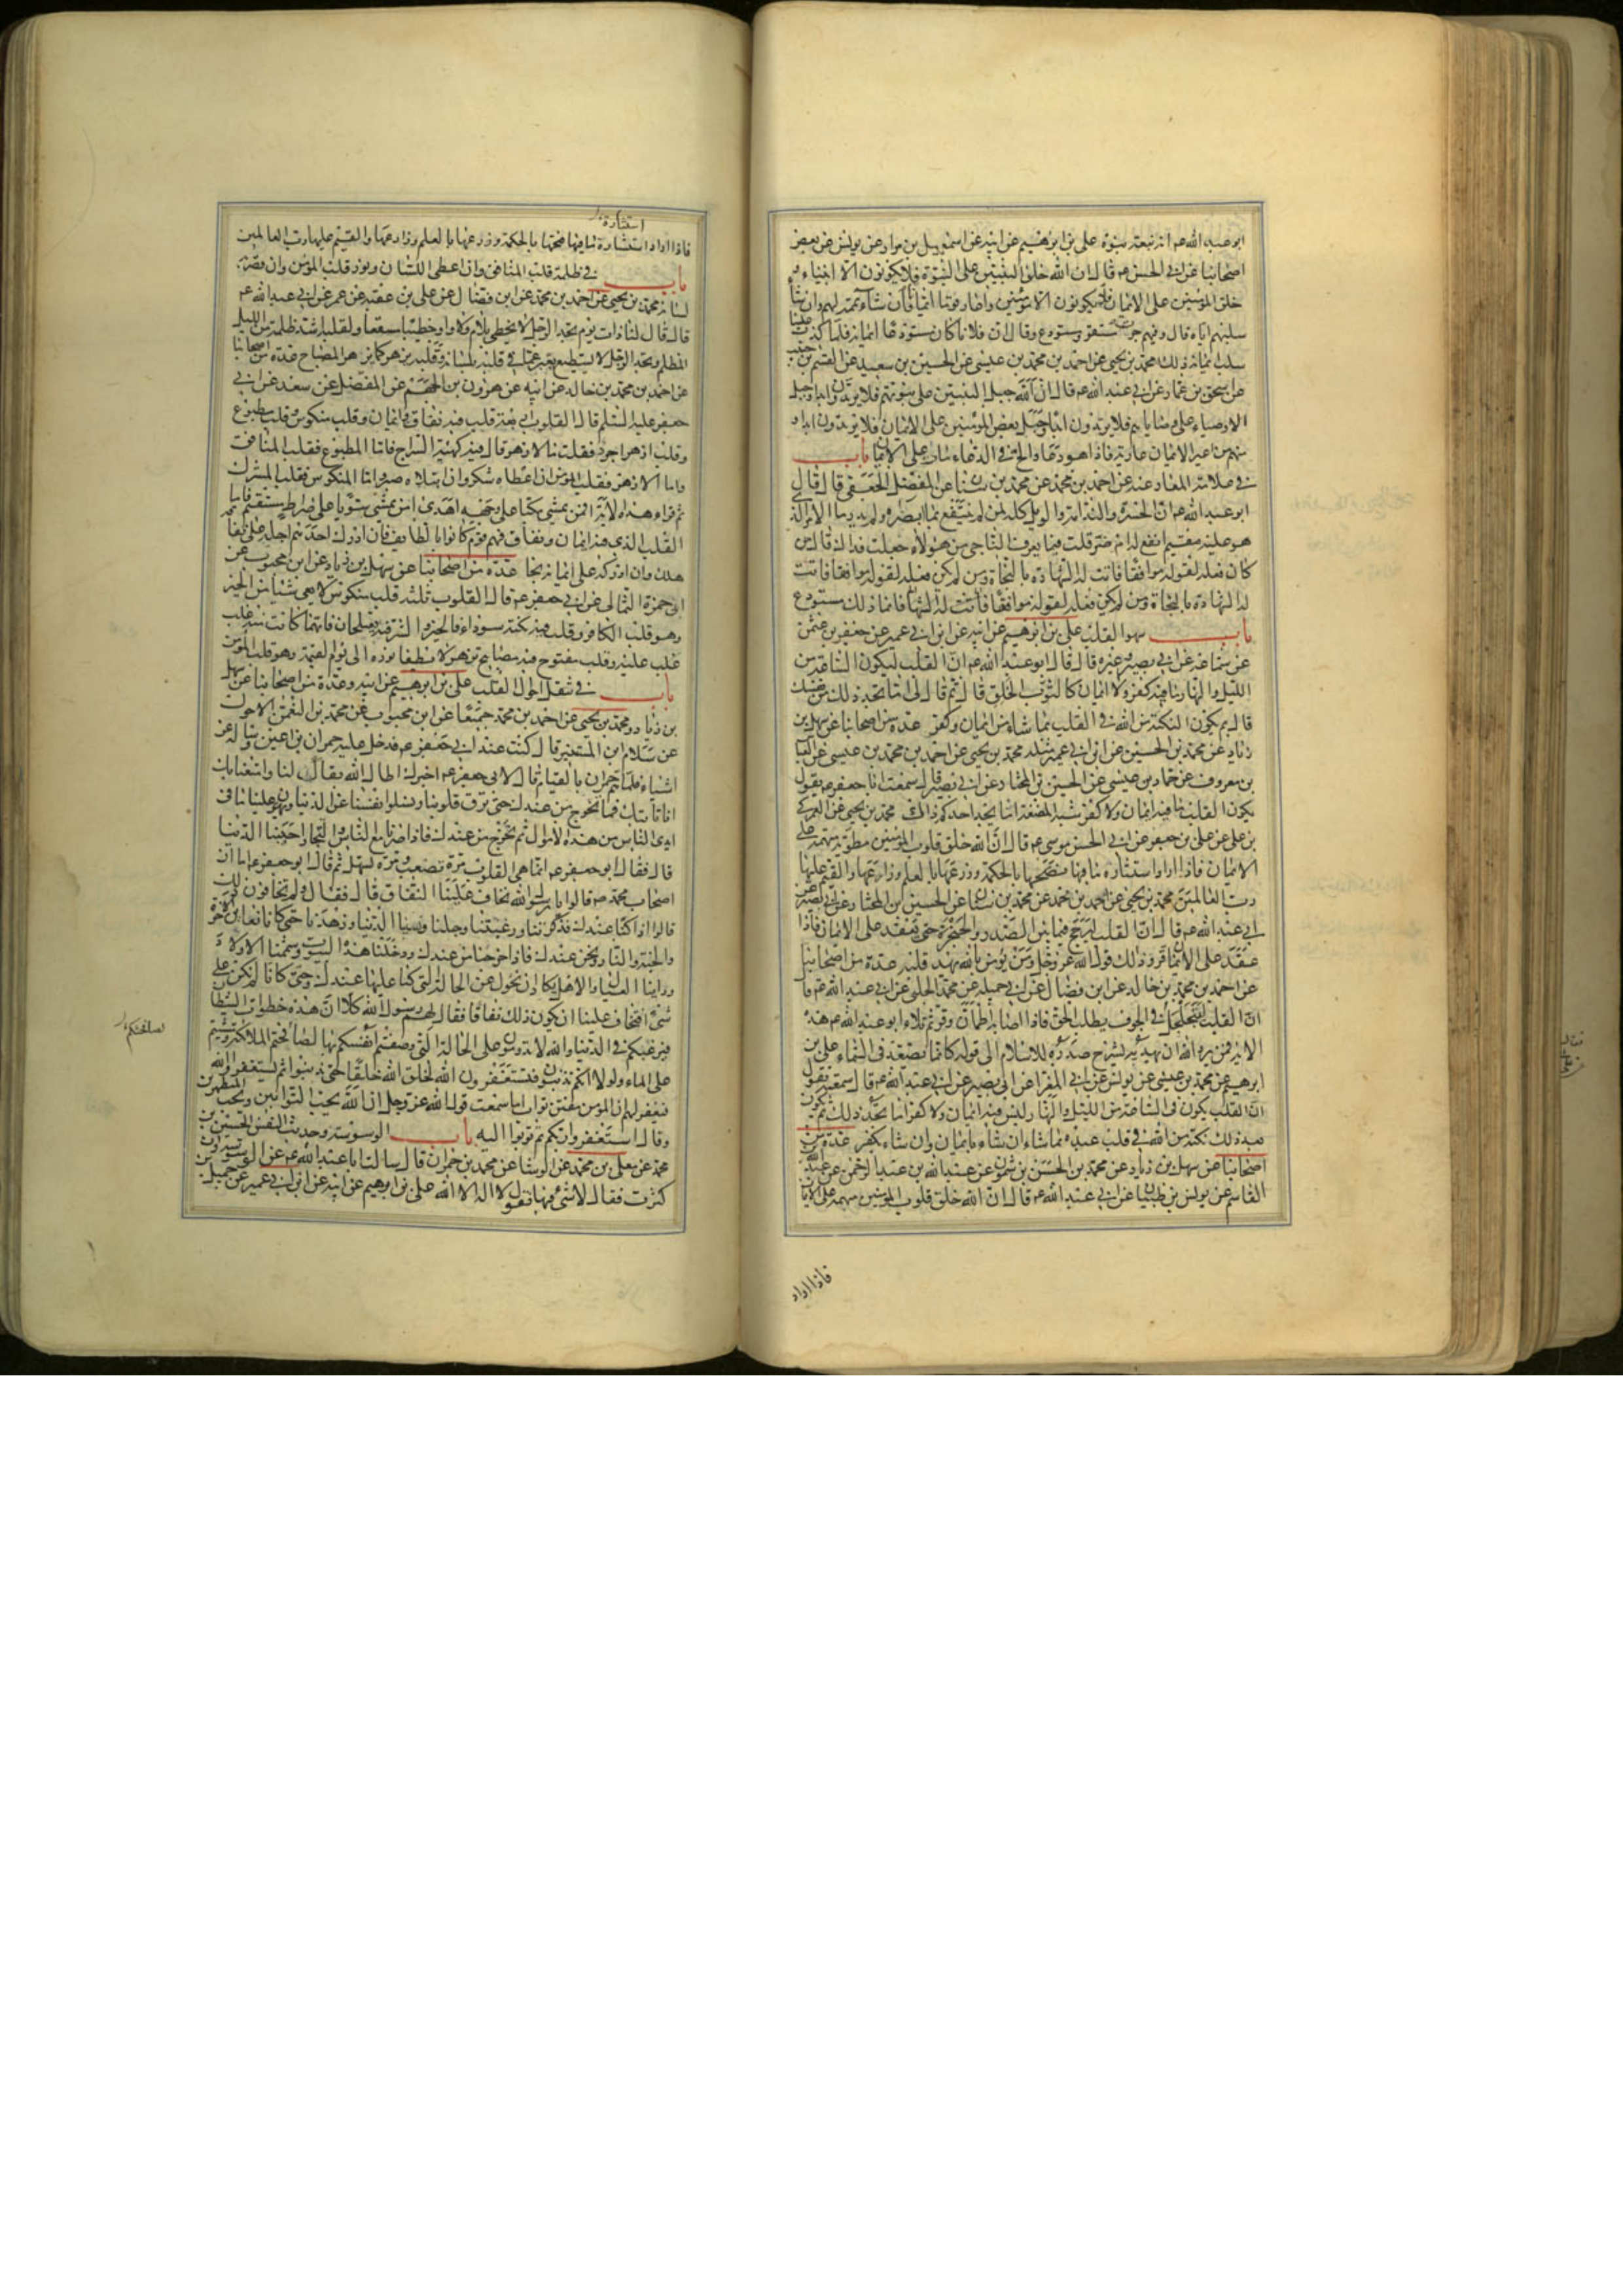 ابو عبد الله عم انه نبعة نبوة علی بن ابرهیم عن ابیه عن اسمعیل بن مرار عن یونس عن بعض
اصحابنا عن ابی الحسن عم قال ان الله خلق النبیین علی النبوة فلا یکونون الا انبیاء و
خلق المؤمنین علی الایمان فلا یکونون الا مؤمنین واعار قوما ایمانا فان شاء تممه لهم وان شاء
سلبهم ایاه قال وفیهم جرت مستقر ومستودع وقال ان فلانا کان مستودعا ایمانه فلما کذب علینا
سلب ایمانه ذلک محمد بن یحیی عن احمد بن محمد بن عیسی عن الحسین بن سعید عن القسم بن حبیب
عن اسحق بن عمار عن ابی عبد الله عم قال ان الله جبل النبیین علی نبوتهم فلا یرتدون ابدا وجبل
الاوصیاء علی وصایاهم فلا یرتدون ابدا وجبل بعض المؤمنین علی الایمان فلا یرتدون ابدا و
منهم من اعیر الایمان عاریة فاذا هو دعا والح فی الدعاء مات علی الایمان باب
فی علامة المعار عنه عن احمد بن محمد عن محمد بن سنان عن المفضل الجعفی قال قال
ابو عبد الله عم ان الحسرة والندامة والویل کله لمن لم ینتفع بما ابصره ولم یدر ما الامر الذی
هو علیه مقیم انفع له ام ضر قلت فبما یعرف الناجی من هؤلاء جعلت فداک قال من
کان فعله لقوله موافقا فاثبت له الشهادة بالنجاة ومن لم یکن فعله لقوله موافقا فاثبت
له الشهادة بالنجاة ومن لم یکن فعله لقوله موافقا فاثبت له الشهادة فانما ذلک مستودع
باب سهو القلب علی بن ابرهیم عن ابیه عن ابن ابی عمیر عن جعفر بن عثمن
عن سماعة عن ابی بصیر وغیره قال قال ابو عبد الله عم ان القلب لیکون الساعة من
اللیل والنهار ما فیه کفر ولا ایمان کالثوب الخلق قال ثم قال لی اما تجد ذلک من نفسک
قال ثم یکون النکتة من الله فی القلب بما شاء من ایمان وکفر عدة من اصحابنا عن سهل بن
زیاد عن محمد بن الحسین عن ابن ابی عمیر مثله محمد بن یحیی عن احمد بن محمد بن عیسی عن العباس
بن معروف عن حماد بن عیسی عن الحسین بن المختار عن ابی بصیر قال سمعت ابا جعفر عم یقول
یکون القلب ما فیه ایمان ولا کفر شبه المضغة اما یجد احدکم ذلک محمد بن یحیی عن العمرکی
بن علی عن علی بن جعفر عن ابی الحسن موسی عم قال ان الله خلق قلوب المؤمنین مطویة مبهمة علی
الایمان فاذا اراد استثارة ما فیها نضحها بالحکمة وزرعها بالعلم وزارعها والقیم علیها
رب العالمین محمد بن یحیی عن احمد بن محمد عن محمد بن سنان عن الحسین بن المختار عن ابی بصیر عن
ابی عبد الله عم قال ان القلب لیرجج فیما بین الصدر والحنجرة حتی یعقد علی الایمان فاذا
عقد علی الایمان قر وذلک قول الله عز وجل ومن یؤمن بالله یهد قلبه عدة من اصحابنا
عن احمد بن محمد بن خالد عن ابن فضال عن ابی جمیلة عن محمد الحلبی عن ابی عبد الله عم قال
ان القلب لیتجلجل فی الجوف یطلب الحق فاذا اصابه اطمأن وقر ثم تلا ابو عبد الله عم هذه
الایة فمن یرد الله ان یهدیه یشرح صدره للاسلام الی قوله کانما یصعد فی السماء علی بن
ابرهیم عن محمد بن عیسی عن یونس عن ابی المغرا عن ابی بصیر عن ابی عبد الله عم قال سمعته یقول
ان القلب یکون فی الساعة من اللیل والنهار لیس فیه ایمان ولا کفر اما تجد ذلک ثم تکون
بعد ذلک نکتة من الله فی قلب عبده بما شاء ان شاء بایمان وان شاء بکفر عدة من
اصحابنا عن سهل بن زیاد عن محمد بن الحسن بن شمون عن عبد الله بن عبد الرحمن عن عبد الله بن
القاسم عن یونس بن ظبیان عن ابی عبد الله عم قال ان الله خلق قلوب المؤمنین مبهمة علی الایمان
فاذا اراد
استثارة
فاذا اراد استشارة ما فیها فتحها بالحکمة وزرعها بالعلم وزارعها والقیم علیها رب العالمین
باب فی ظلمة قلب المنافق وان اعطی اللسان ونور قلب المؤمن وان قصر به
لسانه محمد بن یحیی عن احمد بن محمد عن ابن فضال عن علی بن عقبة عن عمر عن ابی عبد الله عم
قال قال لنا ذات یوم تجد الرجل لا یخطی بلام ولا واو خطیبا مصقعا ولقلبه اشد ظلمة من اللیل
المظلم وتجد الرجل لا یستطیع یعبر عما فی قلبه بلسانه وقلبه یزهر کما یزهر المصباح عدة من اصحابنا
عن احمد بن محمد بن خالد عن ابیه عن هرون بن الجهم عن المفضل عن سعد عن ابی
جعفر علیه السلم قال القلوب اربعة قلب فیه نفاق وایمان وقلب منکوس وقلب مطبوع
وقلب ازهر اجرد فقلت ما الازهر قال فیه کهیئة السراج فاما المطبوع فقلب المنافق
واما الازهر فقلب المؤمن ان اعطاه شکر وان ابتلاه صبر واما المنکوس فقلب المشرک
ثم قرأ هذه الایة افمن یمشی مکبا علی وجهه اهدی امن یمشی سویا علی صراط مستقیم فاما
القلب الذی فیه ایمان ونفاق فهم قوم کانوا بالطایف فان ادرک احدهم اجله علی نفاقه
هلک وان ادرکه علی ایمانه نجا عدة من اصحابنا عن سهل بن زیاد عن ابن محبوب عن
ابی حمزة الثمالی عن ابی جعفر عم قال القلوب ثلثة قلب منکوس لا یعی شیئا من الخیر
وهو قلب الکافر وقلب فیه نکتة سوداء فالخیر والشر فیه یعتلجان فایهما کانت منه غلب
غلب علیه وقلب مفتوح فیه مصابیح تزهر لا یطفأ نوره الی یوم القیمة وهو قلب المؤمن
باب فی تنقل احوال القلب علی بن ابرهیم عن ابیه وعدة من اصحابنا عن سهل
بن زیاد ومحمد بن یحیی عن احمد بن محمد جمیعا عن ابن محبوب عن محمد بن النعمن الاحول
عن سلام ابن المستنیر قال کنت عند ابی جعفر عم فدخل علیه حمران بن اعین وساله عن
اشیاء فلما هم حمران بالقیام قال لابی جعفر عم اخبرک اطال الله بقاک لنا وامتعنا بک
انا ناتیک فما نخرج من عندک حتی ترق قلوبنا وتسلوا انفسنا عن الدنیا ویهون علینا ما فی
ایدی الناس من هذه الاموال ثم نخرج من عندک فاذا صرنا مع الناس والتجار احببنا الدنیا
قال فقال ابو جعفر عم انما هی القلوب مرة تصعب ومرة تسهل ثم قال ابو جعفر عم اما ان
اصحاب محمد ص قالوا یا رسول الله نخاف علینا النفاق قال فقال ولم تخافون ذلک
قالوا اذا کنا عندک فذکرتنا ورغبتنا وجلنا ونسینا الدنیا وزهدنا حتی کانا نعاین الاخرة
والجنة والنار ونحن عندک فاذا خرجنا من عندک ودخلنا هذه البیوت وشممنا الاولاد
وراینا العیال والاهل یکاد ان نحول عن الحال التی کنا علیها عندک وحتی کانا لم نکن علی
شیء افتخاف علینا ان یکون ذلک نفاقا فقال لهم رسول الله کلا ان هذه خطوات الشیطان
فیرغبکم فی الدنیا والله لا تدومون علی الحالة التی وصفتم انفسکم بها لصافحتم الملائکة ومشیتم
لصافحتکم
علی الماء ولولا انکم تذنبون فتستغفرون الله لخلق الله خلقا حتی یذنبوا ثم یستغفروا الله
فیغفر لهم ان المؤمن مفتن تواب اما سمعت قول الله عز وجل ان الله یحب التوابین ویحب المتطهرین
وقال استغفروا ربکم ثم توبوا الیه باب الوسوسة وحدیث النفس الحسین بن
محمد عن معلی بن محمد عن الوشا عن محمد بن حمران قال سالت ابا عبد الله عم عن الوسوسة وان
کثرت فقال لا شیء فیها تقول لا اله الا الله علی بن ابرهیم عن ابیه عن ابن ابی عمیر عن جمیل بن